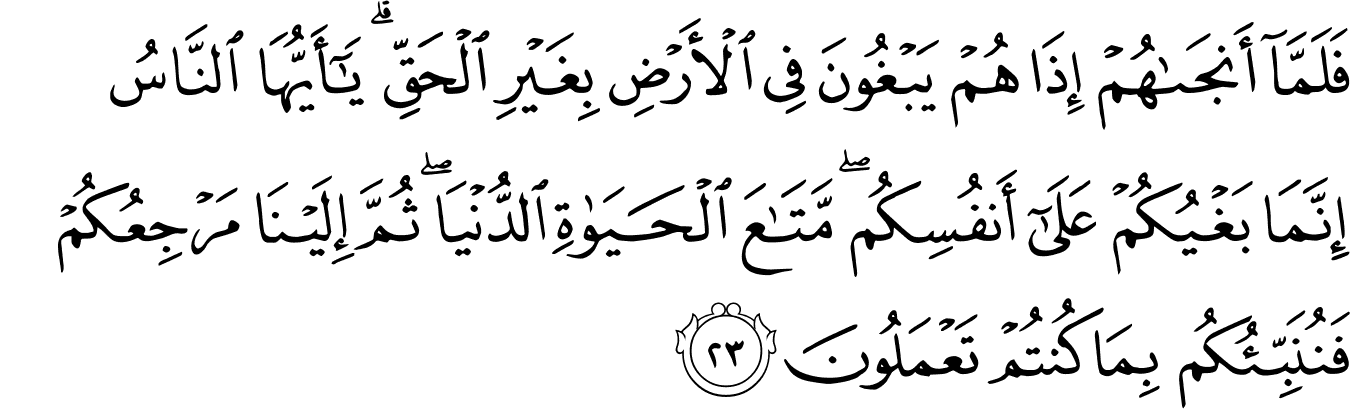 فَلَمَّآ أَنجَىٰهُمْ إِذَا هُمْ يَبْغُونَ فِى ٱلْأَرْضِ بِغَيْرِ ٱلْحَقِّ ۗ يَـٰٓأَيُّهَا ٱلنَّاسُ
إِنَّمَا بَغْيُكُمْ عَلَىٰٓ أَنفُسِكُم ۖ مَّتَـٰعَ ٱلْحَيَوٰةِ ٱلدُّنْيَا ۖ ثُمَّ إِلَيْنَا مَرْجِعُكُمْ
فَنُنَبِّئُكُم بِمَا كُنتُمْ تَعْمَلُونَ ٢٣